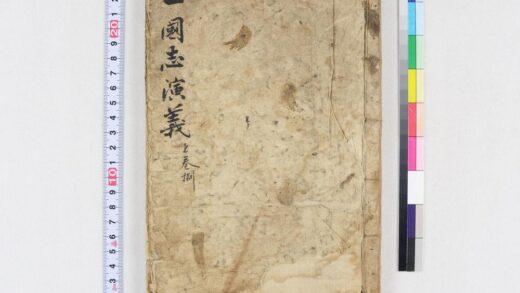 三國志演義
卷
20
9
8
7
6
5
4
3
2
1
10
9
8
7
6
5
4
3